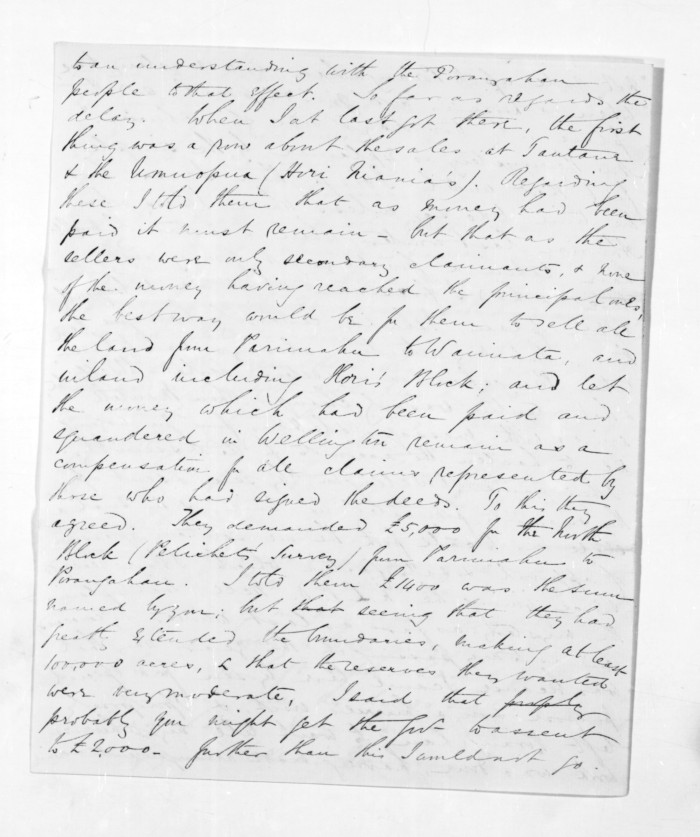 to an understanding with the Porangahau
people to that effect. So far as regards the
delay. When I at last got there, the first
thing was a row about the sales at Tautane
& the Umuopua (Hori Niania's). Regarding
these I told them that as money had been
paid it must remain - but that as the
sellers were only secondary claimants, & none
of the money having reached the principal ones,
the best way would be for them to sell all
the land from Parimahu to Waimata, and
inland including Hori's Block; and let
the money which had been paid and
squandered in Wellington remain as a
compensation for all claims represented by
those who had signed the deeds. To this they
agreed. They demanded £5,000 for the North
Block (Pelichet's Survey) from Parimahu to
Porangahau. I told them £1400 was the sum
named by you; but that seeing that they had
greatly extended the boundaries, making at least
100,000 acres, & that the reserves they wanted
were very moderate, I said that
probably you might get the Govt to assent
to £2,000 - further than this I could not go.